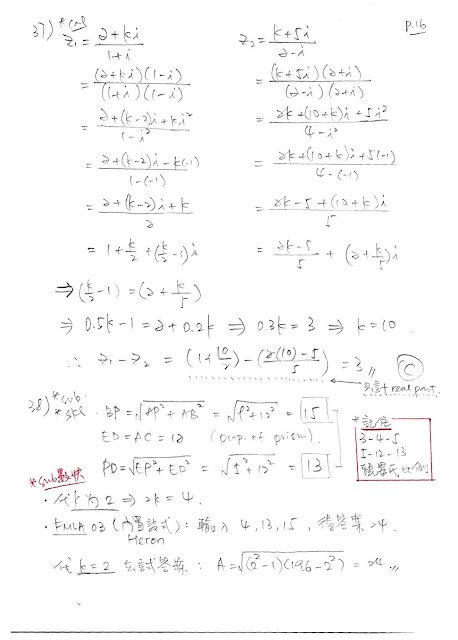 P.16
37) *sub
z₁ = (2+ki)/(1+i)
= (2+ki)(1-i)/(1+i)(1-i)
= (2+(k-2)i+ki²)/(1-i²)
= (2+(k-2)i-k(-1))/(1-(-1))
= (2+(k-2)i+k)/2
= 1+k/2+(k/2-1)i
z₂ = (k+5i)/(2-i)
= (k+5i)(2+i)/(2-i)(2+i)
= (2k+(10+k)i+5i²)/(4-i²)
= (2k+(10+k)i+5(-1))/(4-(-1))
= (2k-5+(10+k)i)/5
= (2k-5)/5 + (2+k/5)i
⇒ (k/2-1) = (2+k/5)
⇒ 0.5k-1 = 2+0.2k ⇒ 0.3k = 3 ⇒ k=10.
∴ z₁-z₂ = (1+10/2)-((2(10)-5)/5) = 3 Ⓒ
只計 real part.
38) *sub
BP = √(AP²+AB²) = √(9²+12²) = 15
ED = AC = 12 (prop. of prism).
PD = √(EP²+ED²) = √(5²+12²) = 13
*記住
3-4-5
5-12-13
畢氏比例
*Sub數快
• 代k為2 ⇒ 2k = 4.
• FMLA 03 (內置程式): 輸入 4, 13, 15, 得答案 24.
Heron
代 k=2 去試答案: A=√((2²-1)(196-2²)) = 24